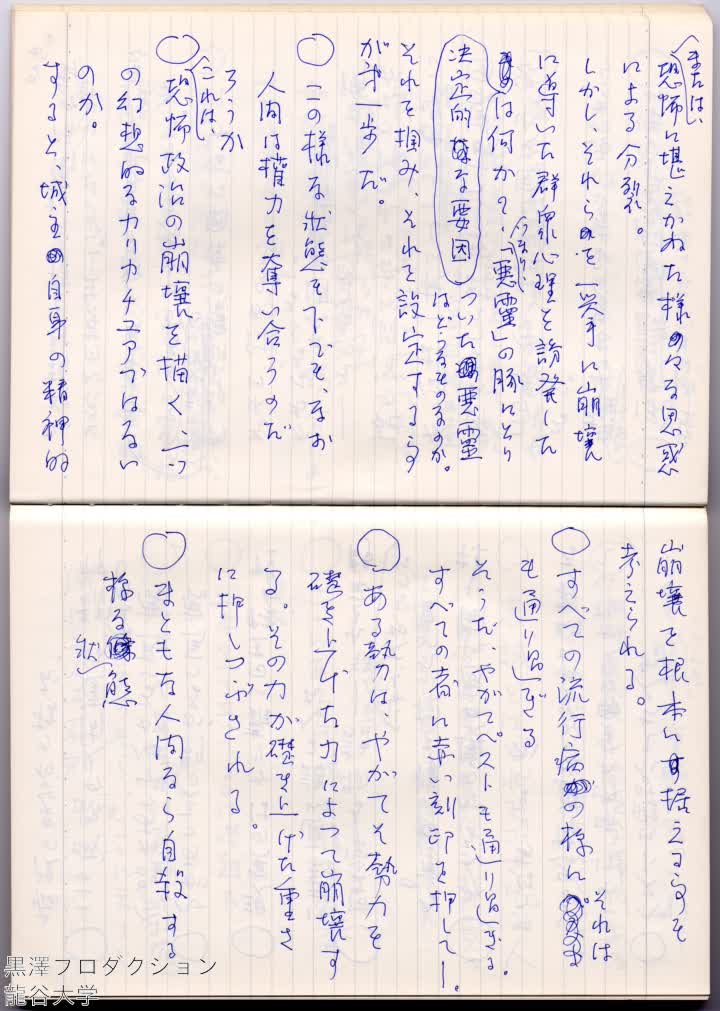 または、
恐怖に堪えかねた様々な思惑
による分裂。
しかし、それらを一挙に崩壊
に導いた群衆心理を誘発した
は何か?、「悪靈」の豚にとり
つまり、
決定的な要因
ついた悪靈
はどうなるのか。
それを掴み、それを設定する事
が第一歩だ。
○この様な状態の下でも、なお
人間は権力を奪い合うのだ
ろうか
これは、
○恐怖政治の崩壊を描く、一つ
の幻想的なカリカチュアではない
のか。
すると、城主自身の精神的
崩壊を根本に据える事も
考えられる。
○すべての流行病の様に
それは
も通り過ぎる
そうだ、やがてペストも通り過ぎる。
すべての者に赤い刻印を押して—。
○ある勢力は、やがてその勢力を
礎き上げた力によって崩壊す
る。その力が礎き上げた重さ
に押しつぶされる。
○まともな人間なら自殺する
様な態
状
黒澤プロダクション
龍谷大学